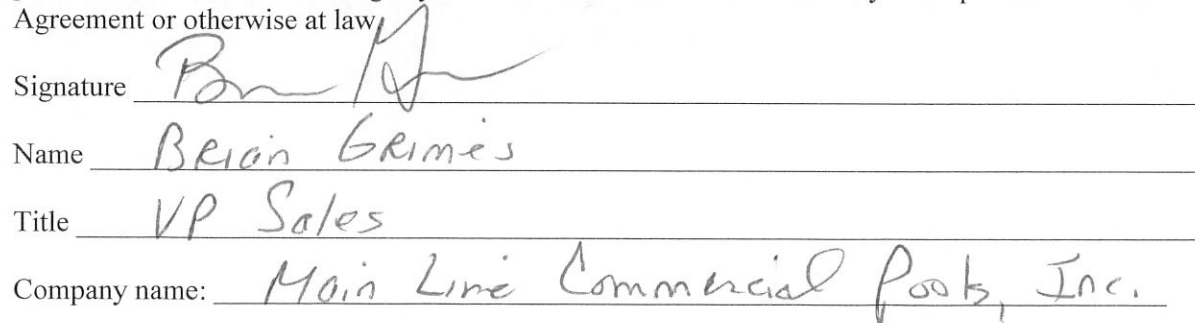 Agreement or otherwise at law
Signature
Name Brian Grimes
Title VP Sales
Company name: Main Line Commercial Pools, Inc.